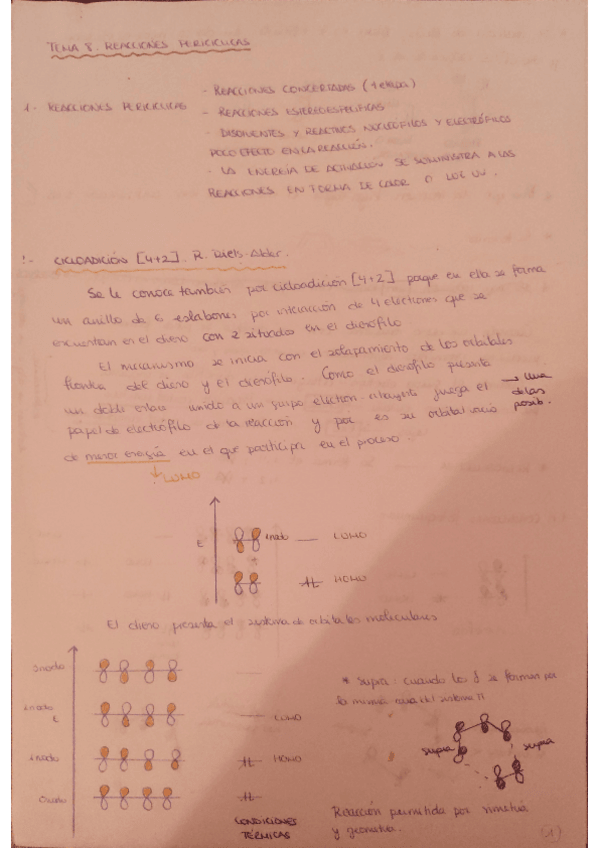 TEMA 8. REACCIONES PERICICLICAS
- REACCIONES CONCERTADAS (1 etapa)
1- REACCIONES PERICICLICAS - REACCIONES ESTEREOESPECIFICAS
- DISOLVENTES Y REACTIVOS NUCLEÓFILOS Y ELECTRÓFILOS
POCO EFECTO EN LA REACCIÓN.
- LA ENERGÍA DE ACTIVACIÓN SE SUMINISTRA A LAS
REACCIONES EN FORMA DE CALOR O LUZ UV.
CICLOADICIÓN [4+2] R. Diels-Alder.
Se le conoce también por cicloadición [4+2] porque en ella se forma
un anillo de 6 eslabones por interacción de 4 electrones que se
encuentran en el dieno con 2 situados en el dienófilo.
El mecanismo se inicia con el solapamiento de los orbitales
frontera del dieno y el dienófilo. Como el dienófilo presenta
un doble enlace unido a un grupo electrón-atrayente juega el → una de las posib.
papel de electrófilo de la reacción y por es su orbital vacío
de menor energía en el que participa en el proceso.
LUMO
E 1 nodo LUMO
HOMO
El dieno presenta el sistema de orbitales moleculares
3 nodo
* Supra: cuando los se forman por
la misma cara del sistema π
2 nodo LUMO
E
supra supra
1 nodo HOMO
0 nodo
CONDICIONES
TÉRMICAS
Reacción permitida por simetría
y geometría.
(1)